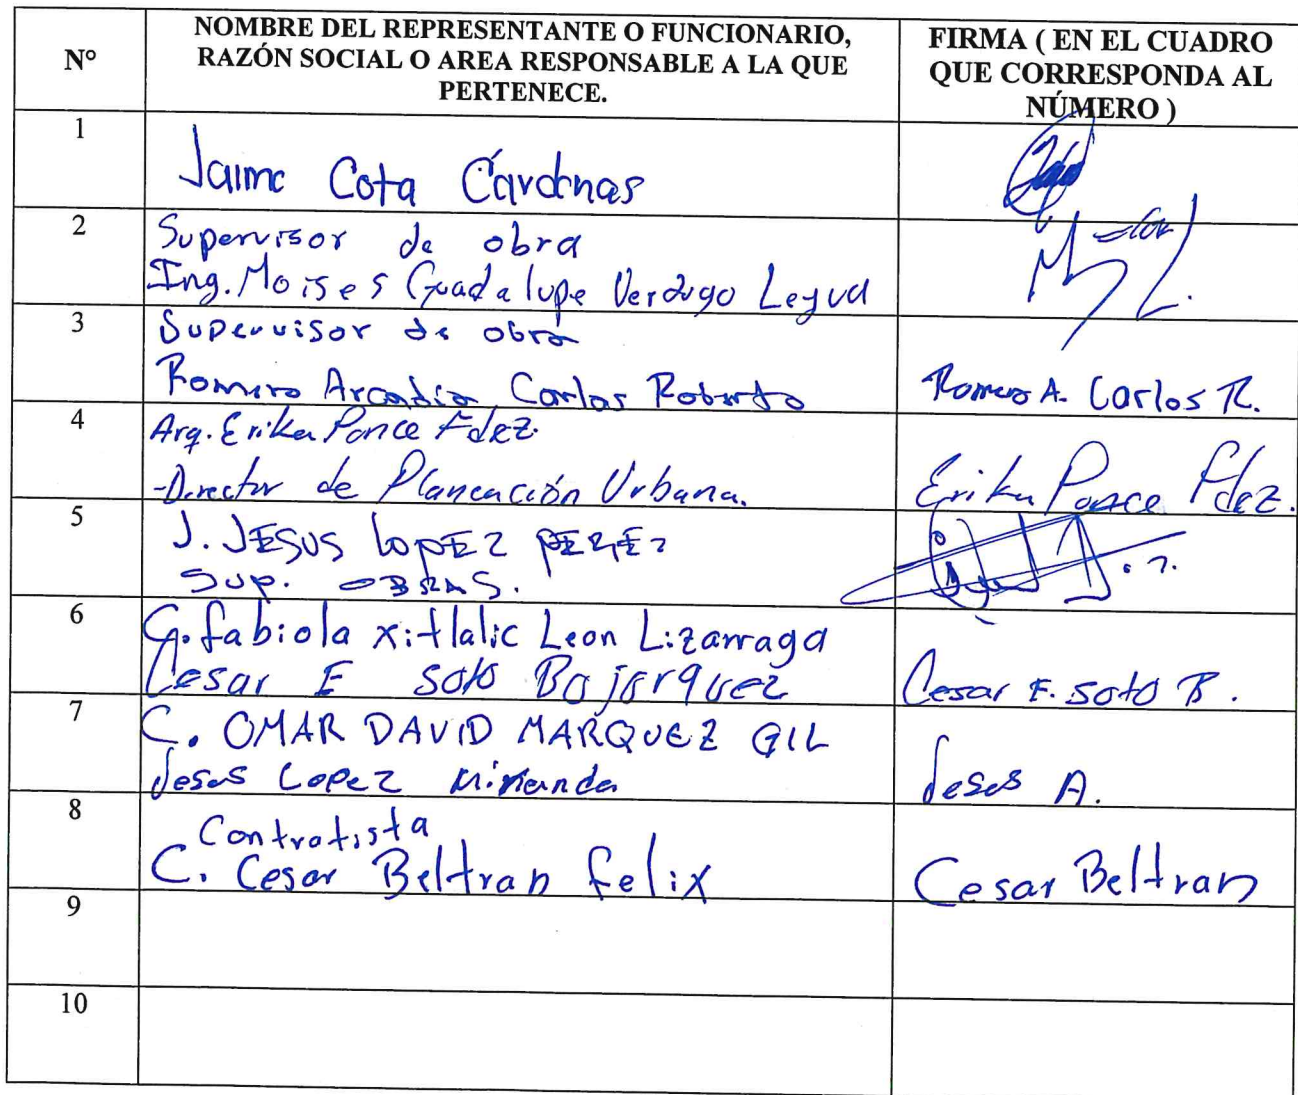 Nº
NOMBRE DEL REPRESENTANTE O FUNCIONARIO,
RAZÓN SOCIAL O AREA RESPONSABLE A LA QUE
PERTENECE.
FIRMA ( EN EL CUADRO
QUE CORRESPONDA AL
NÚMERO )
1
Jaime Cota Cárdenas
2
Supervisor de obra
Ing. Moises Guadalupe Verdugo Leyva
3
Supervisor de obra
Romero Arcadia Carlos Roberto
Romero A. Carlos R.
4
Arq. Erika Ponce Fdez.
-Director de Planeación Urbana.
Erika Ponce Fdez.
5
J. JESUS LOPEZ PEREZ
SUP. OBRAS.
6
G. fabiola xitlalic Leon Lizarraga
Cesar E Soto Bojorquez
Cesar E. Soto B.
7
C. OMAR DAVID MARQUEZ GIL
Jesus Lopez Miranda
Jesus A.
8
Contratista
C. Cesar Beltran felix
Cesar Beltran
9
10